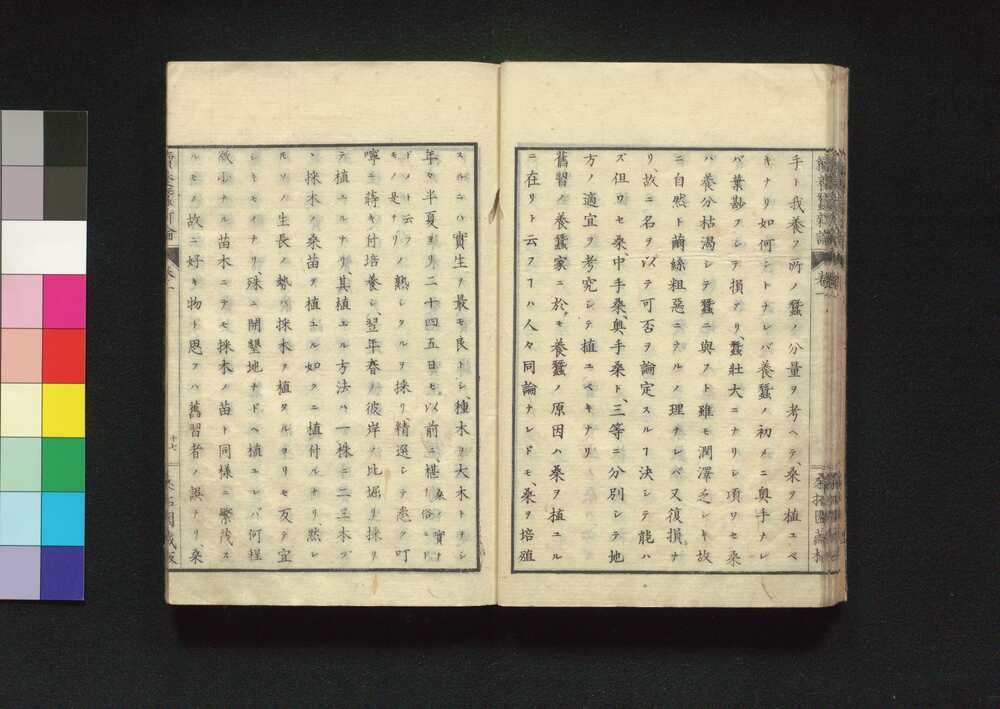 手ト我養フ所ノ蠶ノ分量ヲ考ヘテ、桑ヲ植ユベ
キナリ如何ントナレバ養蠶ノ初メニ奥手ナレ
バ葉勘フシテ損アリ、蠶壮大ニナリシ頃ワセ桑
ハ養分枯渇シテ蠶ニ與フト雖モ潤澤乏シキ故
ニ自然ト繭絲粗惡ニナルノ理ナレベ又復損ナ
リ故ニ名ヲ以テ可否ヲ論定スルヿ決シテ能ハ
ズ但ワセ桑中手桑、奥手桑ト、三等ニ分別シテ地
方ノ適宜ヲ考究シテ植ユベキナリ
舊習ノ養蠶家ニ於テモ養蠶ノ原因ハ桑ヲ植ユル
ニ在リト云フヿハ人々同論ナレドモ、桑ヲ培殖
スルニハ實生ヲ最モ良トシ、種木ヲ大木トナシ
年々半夏ヨリ二十四五日モ以前ニ、椹桑ノ實ナリ俗ニ
ドドメト云フモノ是ナリノ熟シタルヲ採リ、精選シテ悉ク叮
嚀ニ蒔キ付培養シ、翌年春ノ彼岸ノ比堀リ採リ
テ植ユルナリ、其植エル方法ハ一株ニ二三本ヅ
ヽ採木ノ桑苗ヲ植ユル如クニ植付ルナリ、然レ
モソノ生長ノ勢ハ採木ヲ植タルヨリモ反テ宜
シキモノナリ、殊ニ開墾地ナドヘ植ユレバ何程
微小ナル苗木ニテモ採木ノ苗ト同様ニ繁茂ス
ルモノ故ニ好キ物ト思フハ舊習者ノ誤ナリ、桑
卷一
十七